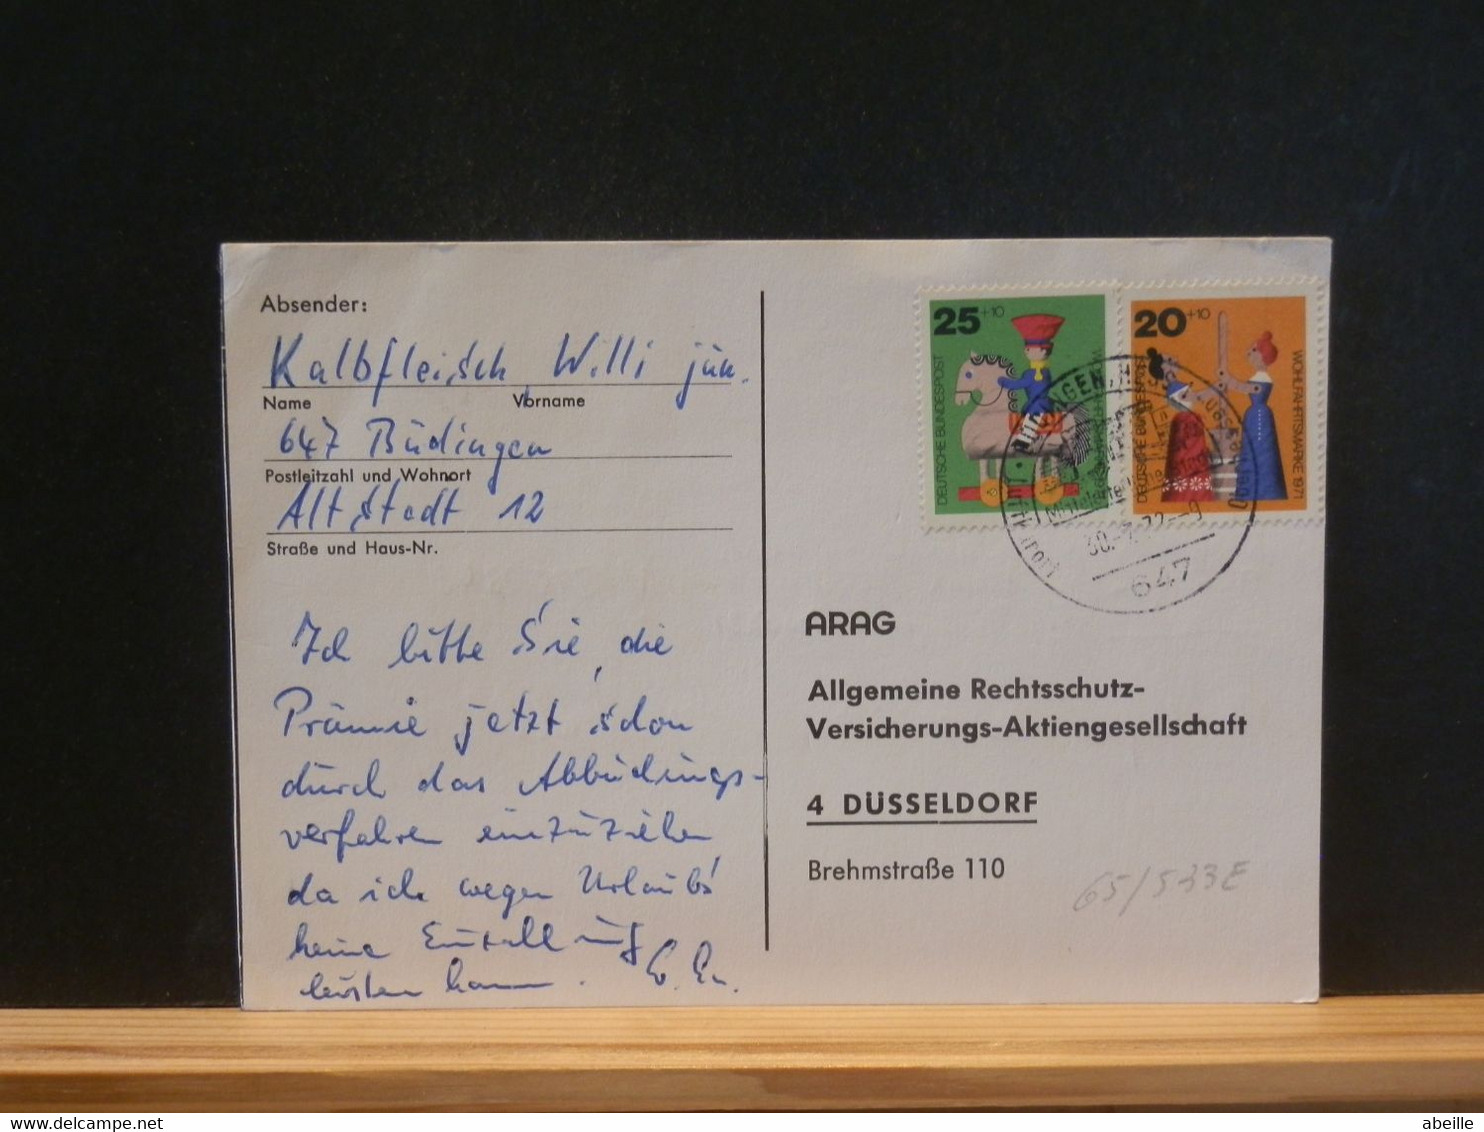 Absender:
Kalbfleisch, Willi jun.
Name Vorname
647 Büdingen
Postleitzahl und Wohnort
Altstadt 12
Straße und Haus-Nr.
Ich bitte Sie, die
Prämie jetzt schon
durch das Abbuchungs-
verfahren einzuziehen
da ich wegen Urlaubs
keine Einzahlung
leisten kann.
25+10
DEUTSCHE BUNDESPOST
20+10
WOHLFAHRTSMARKE 1971
DEUTSCHE BUNDESPOST
647
ARAG
Allgemeine Rechtsschutz-
Versicherungs-Aktiengesellschaft
4 DÜSSELDORF
Brehmstraße 110
65/533E
abeille